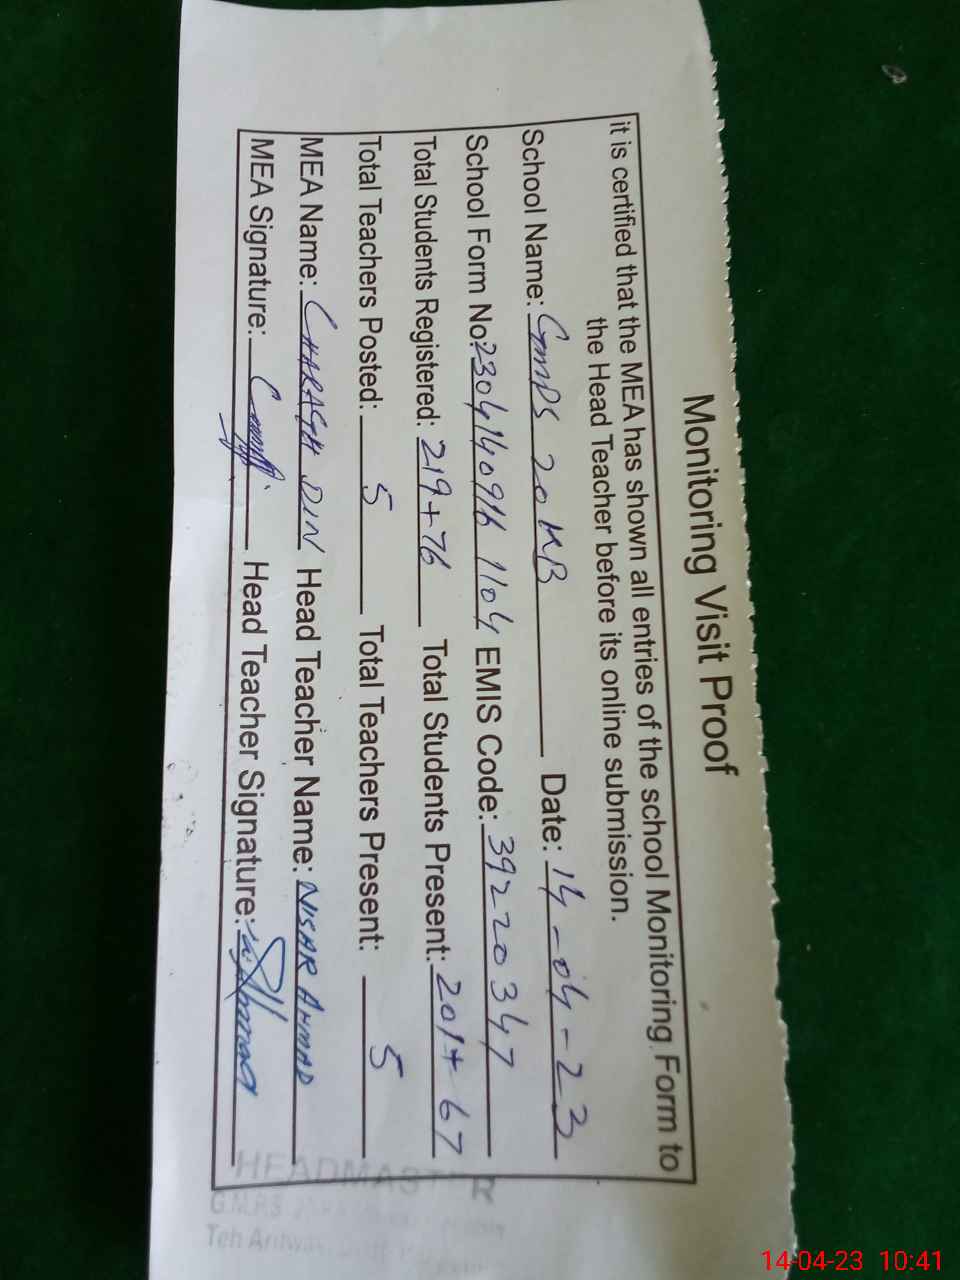 Monitoring Visit Proof
it is certified that the MEA has shown all entries of the school Monitoring Form to
the Head Teacher before its online submission.
School Name: GMPS 20 MB Date: 14-04-23
School Form No: 230414091b 1104 EMIS Code: 39220347
Total Students Registered: 219+76 Total Students Present: 201+67
Total Teachers Posted: 5 Total Teachers Present: 5
MEA Name: CHARAGH DIN Head Teacher Name: NISAR AHMAD
MEA Signature: Head Teacher Signature:
HEADMASTER
G.M.P.S
Teh
14-04-23 10:41